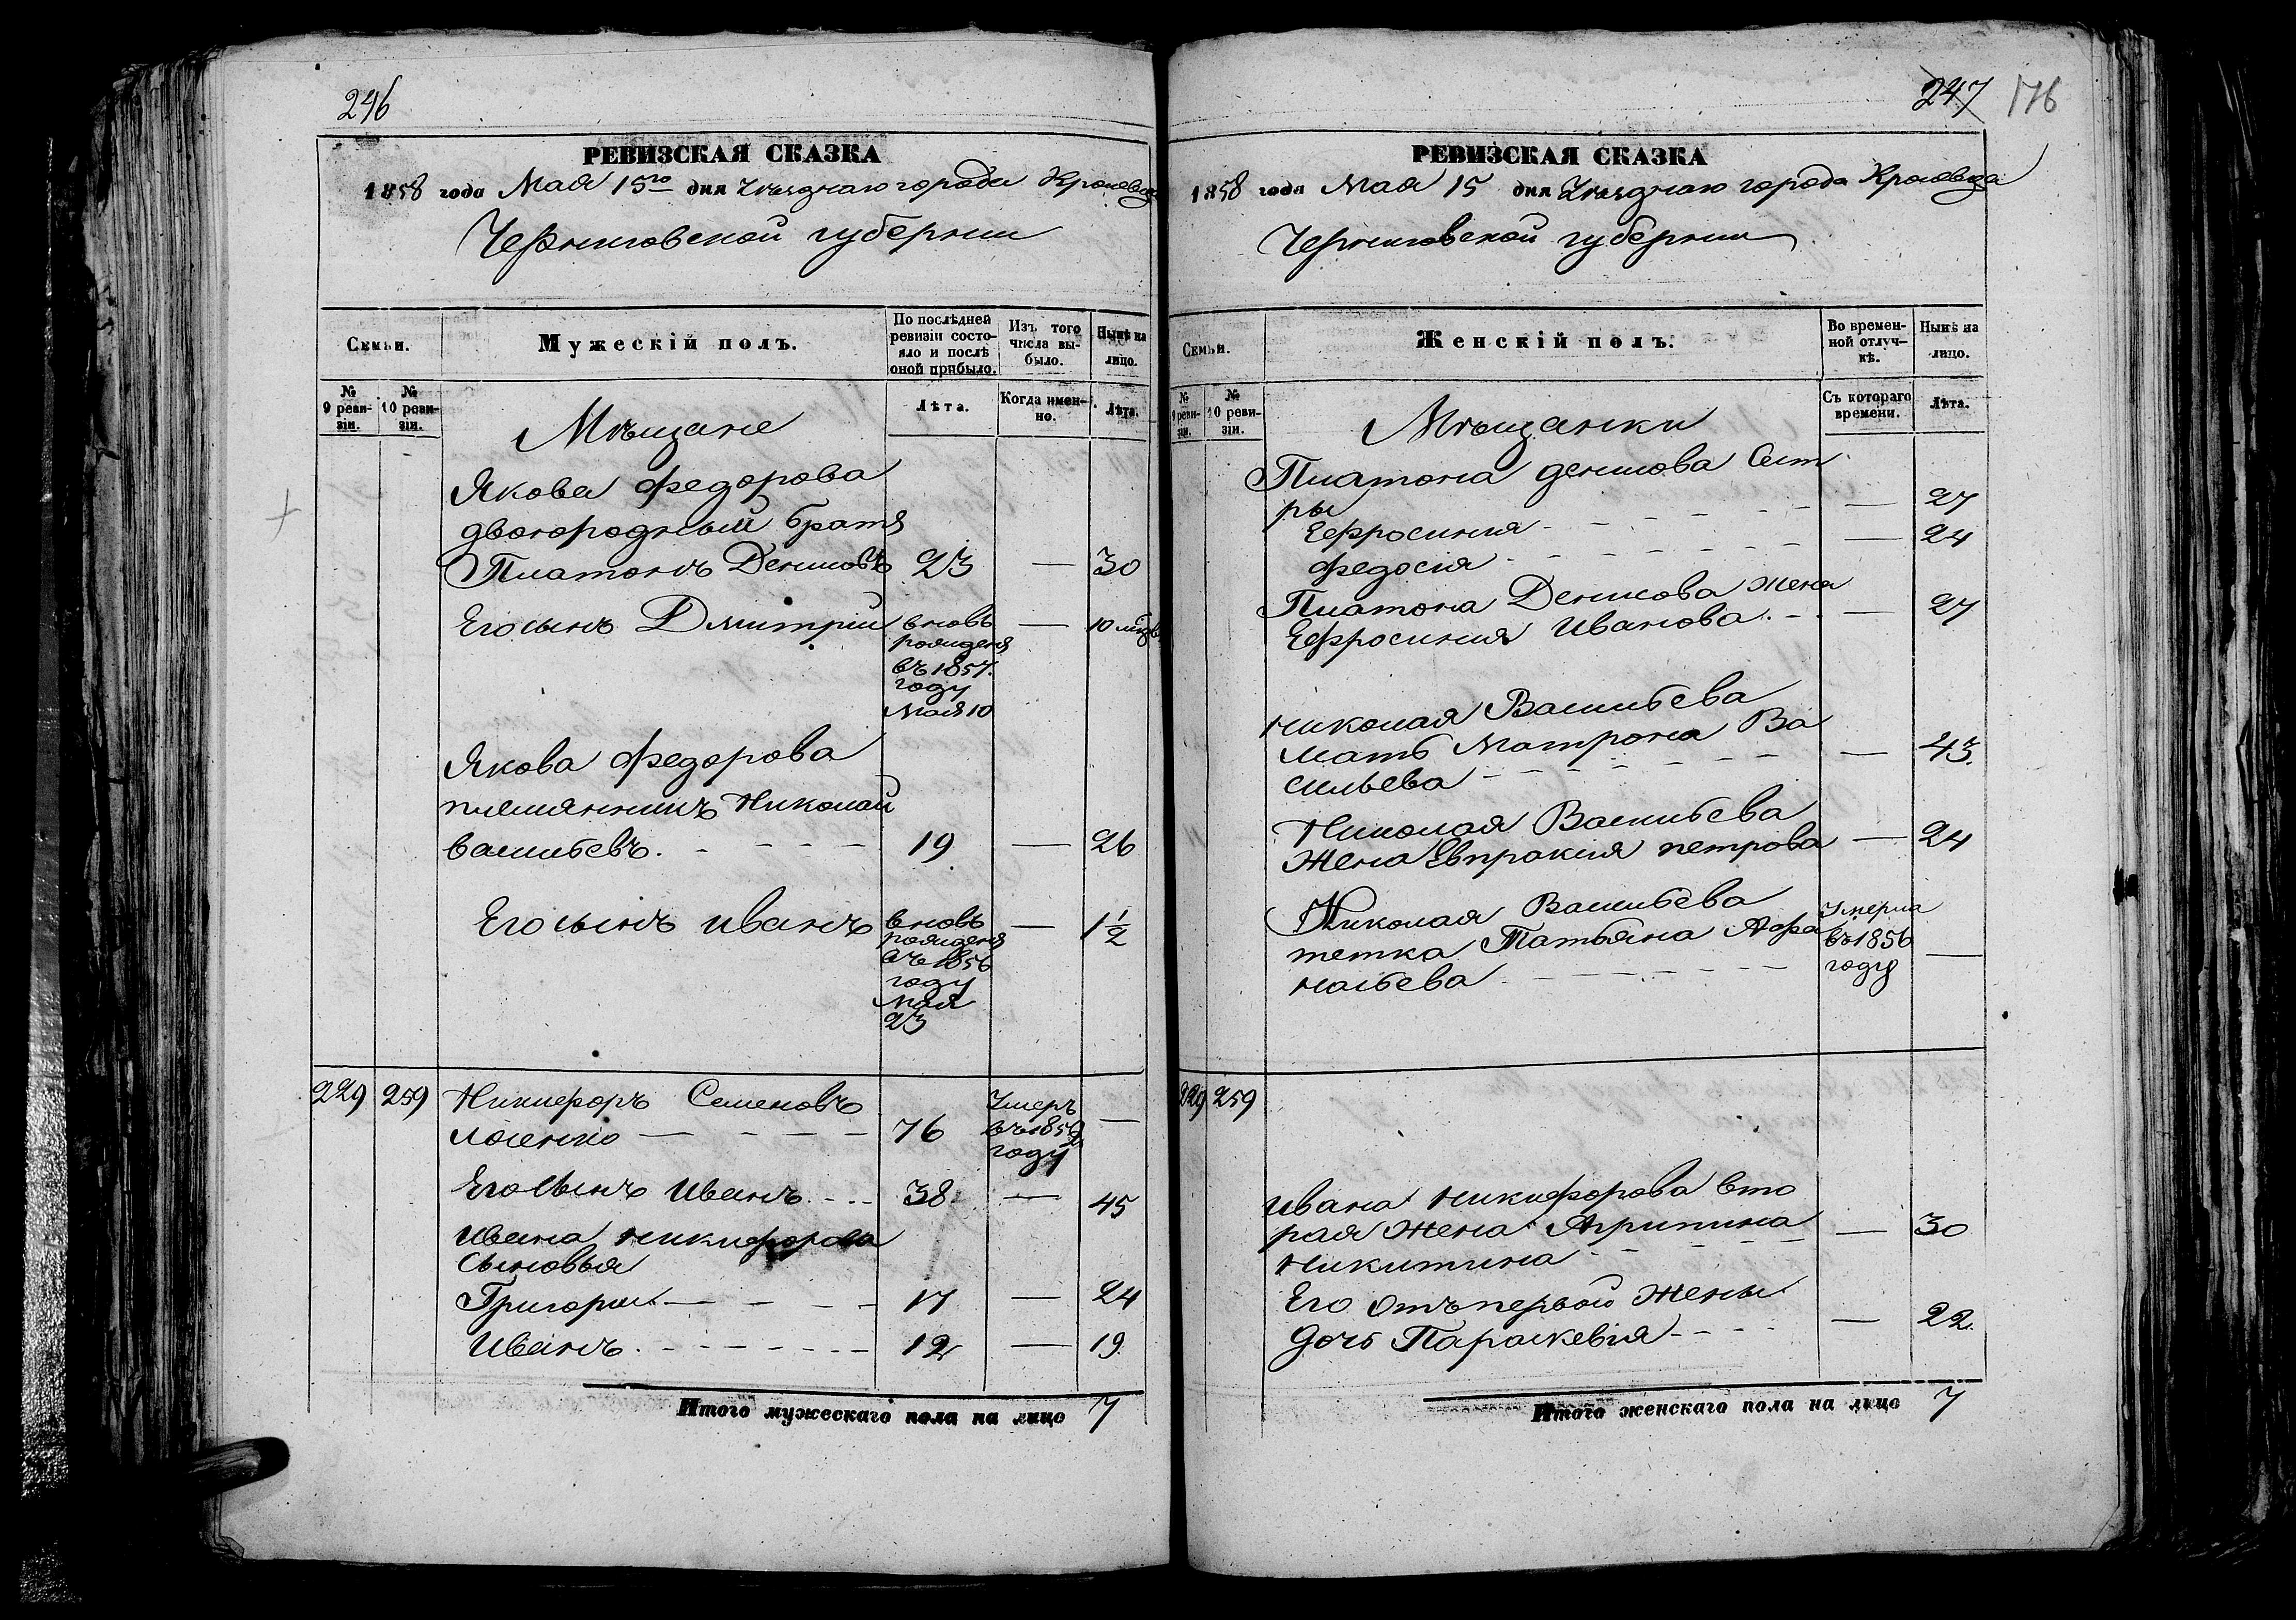 246
РЕВИЗСКАЯ СКАЗКА
1858 года Мая 15го дня Уѣзднаго города Кролевца
Черниговской губерніи
Семьи.
Мужескій полъ.
По послѣдней ревизіи состояло и послѣ оной прибыло.
Изъ того числа выбыло.
Нынѣ на лицо.
№ 9 ревизіи.
№ 10 ревизіи.
Лѣта.
Когда именно.
Лѣта.
Мѣщане
Якова Федорова
двоюродный братъ
Платонъ Денисовъ 23 — 30
Его сынъ Дмитрій вновь — 10 мѣс
рожденъ
въ 1857.
году
Мая 10
Якова Федорова
племянникъ Николай
Васильевъ. 19 — 26
Его сынъ Иванъ вновь — 1 1/2
рожденъ
въ 1856
году
Мая
23
229 259 Никифоръ Семеновъ Умеръ
76 въ 185 —
году
Его сынъ Иванъ 38 — 45
Ивана Никифорова
сыновья
Григорій 17 — 24
Иванъ 12 — 19
Итого мужескаго пола на лицо 7
247 176
РЕВИЗСКАЯ СКАЗКА
1858 года Мая 15 дня Уѣзднаго города Кролевца
Черниговской губерніи
Семьи.
Женскій полъ.
Во временной отлучкѣ.
Нынѣ на лицо.
№ 9 ревизіи.
№ 10 ревизіи.
Съ котораго времени.
Лѣта.
Мѣщанки
Платона Денисова Сест
ры — 27
Ефросинія — 24
Федосія
Платона Денисова жена
Ефросинія Иванова — 27
Николая Васильева
мать Матрона Ва
сильева — 43
Николая Васильева
жена Евпраксія Петрова — 24
Николая Васильева Умерла
тетка Татьяна Афа въ 1856
насьева году —
229 259
Ивана Никифорова вто
рая жена Агрипина — 30
Никитина
Его отъ первой жены
дочь Параскевія — 22
Итого женскаго пола на лицо 7